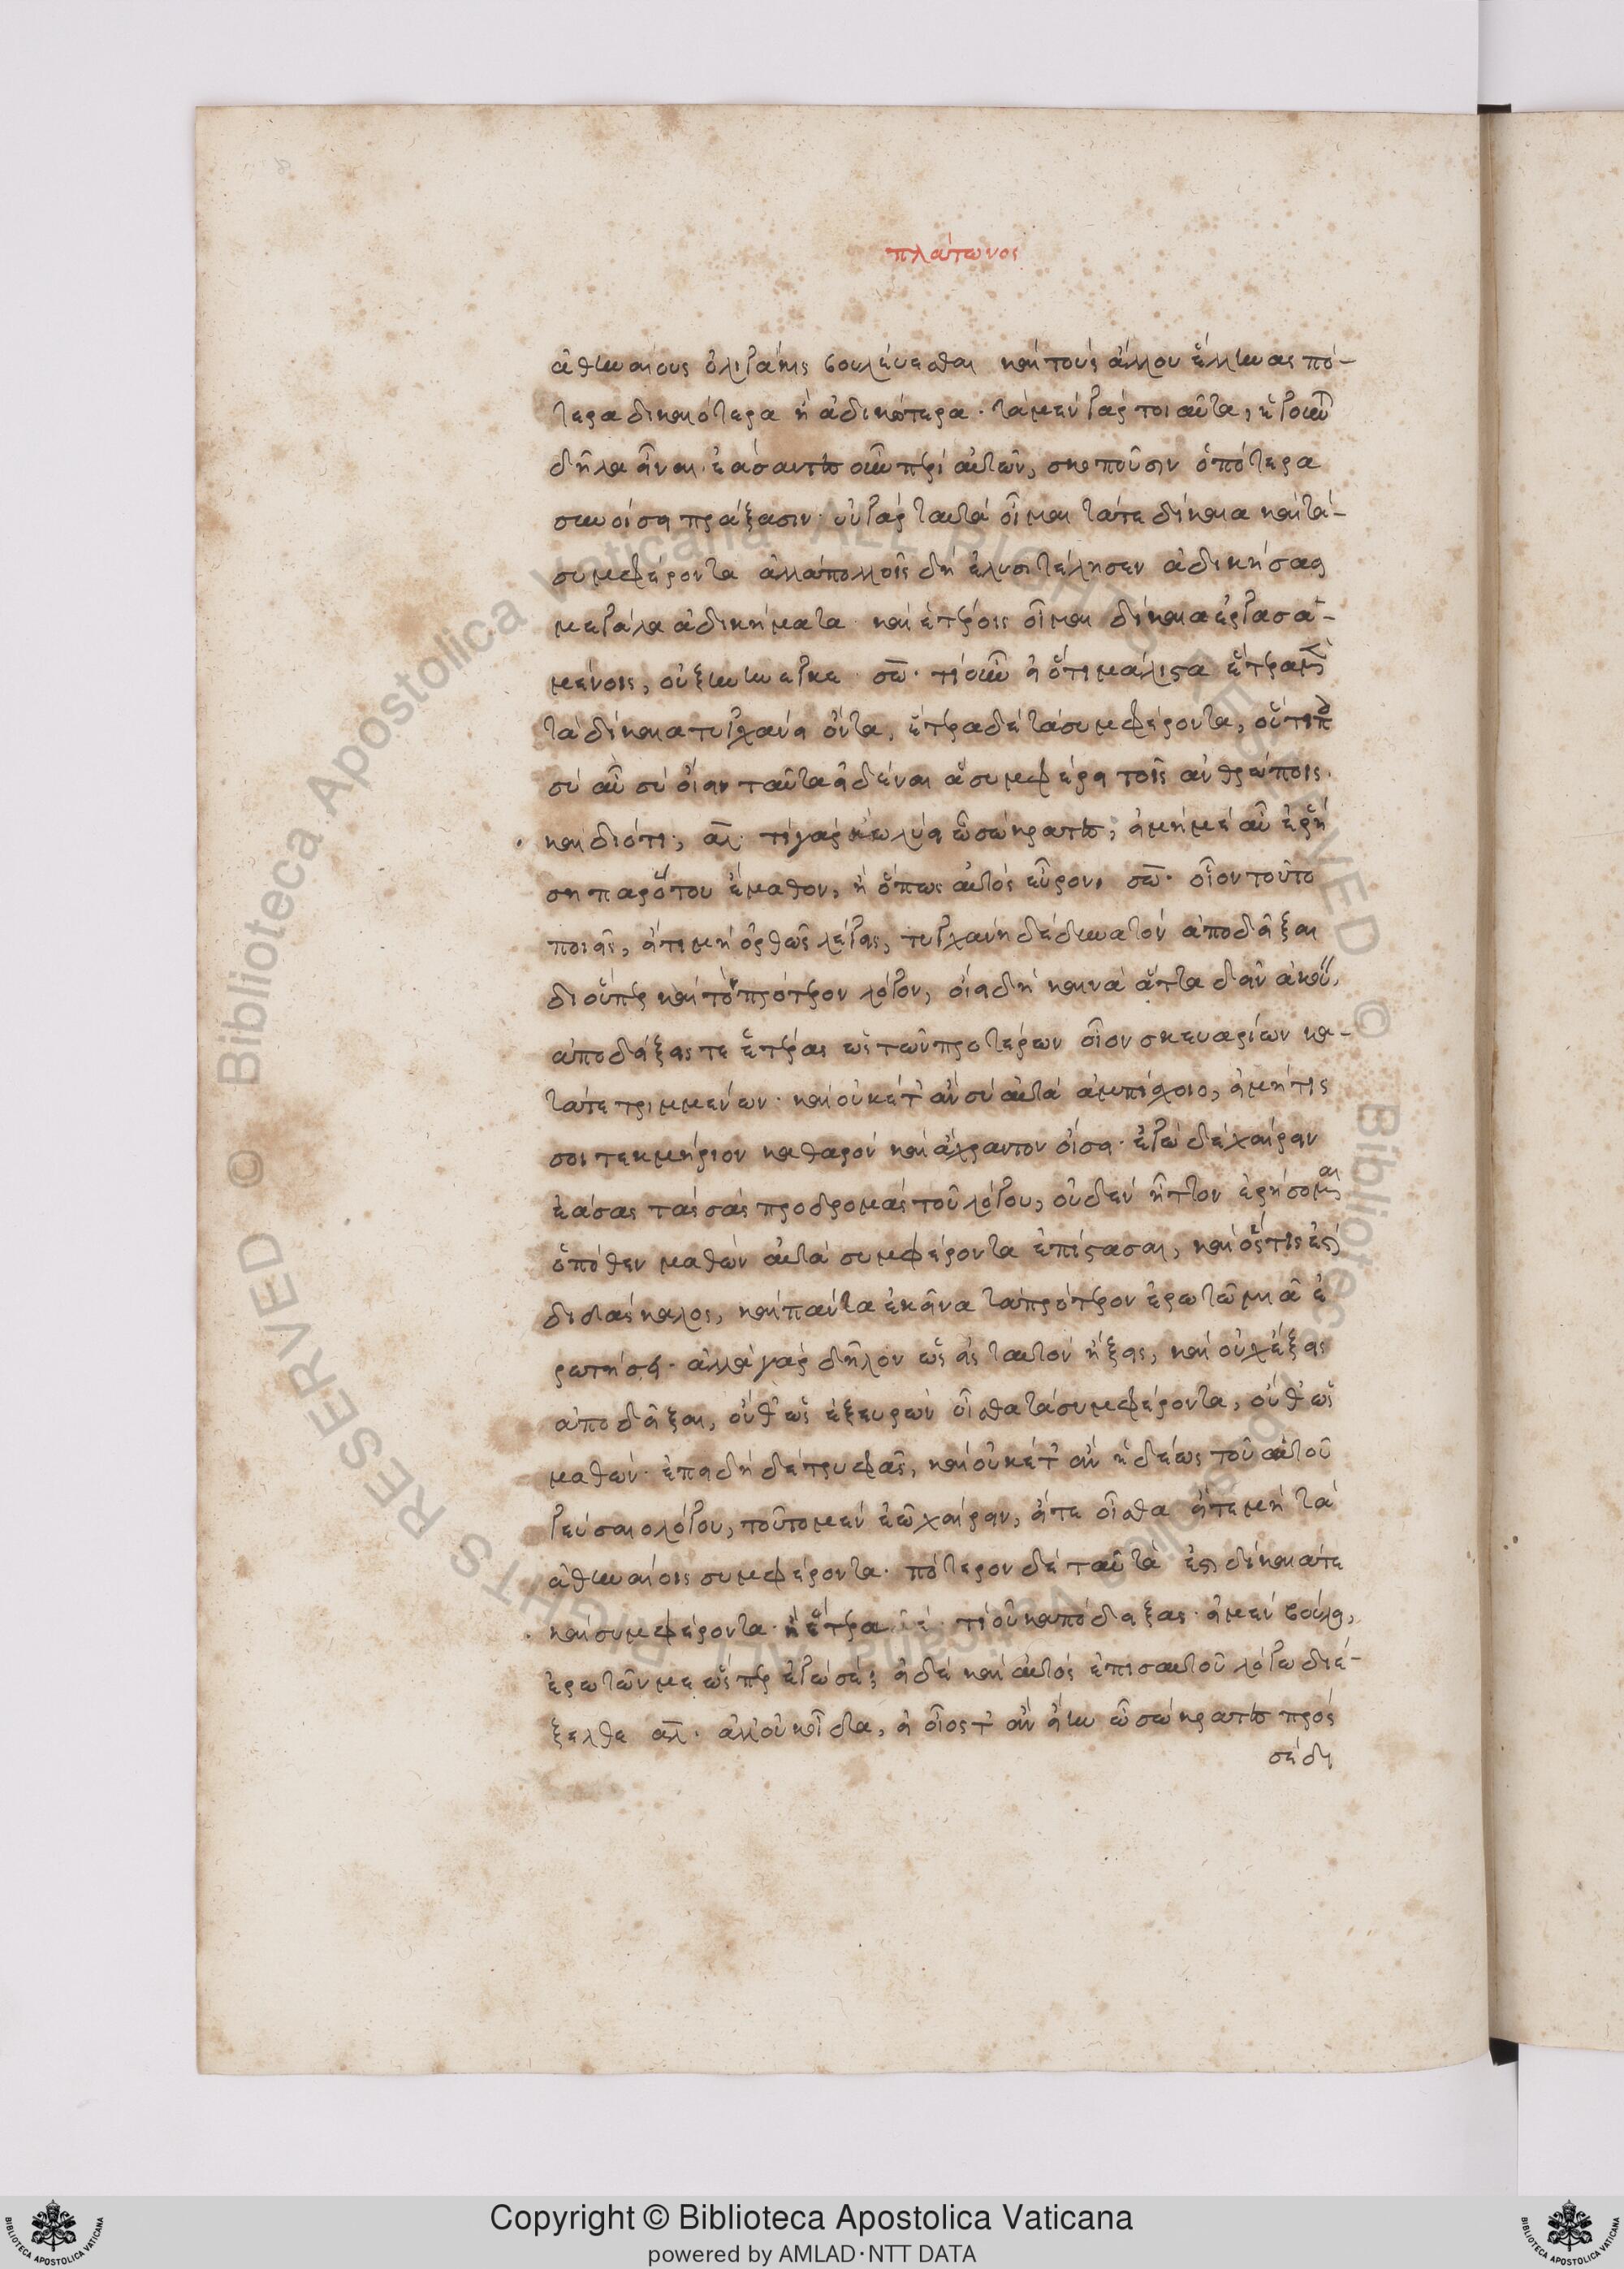 πλάτωνος
ἀθηναίους ὀλιγάκις βουλέυεσθαι καὶ τοὺς ἄλλου ἕλληνας πό-
τερα δικαιότερα ἢ ἀδικώτερα· τὰ μὲν γὰρ τοιαῦτα, ἡγοῦν
δῆλα εἶναι· ἐάσαντες οὖν περὶ αὐτῶν, σκοποῦσιν ὁπότερα
συνοίσει πράξασιν· οὐ γὰρ ταυτὰ οἶμαι τάτε δίκαια καὶ τὰ-
συμφέροντα ἀλλὰ πολλοῖς δὴ ἐλυσιτέλησεν ἀδικήσασι
μεγάλα ἀδικήματα· καὶ ἑτέροις οἶμαι δίκαια ἐργασα-
μένοις, οὐ ξυνήνεγκε· σω· τί οὖν εἰ ὅτι μάλιστα ἕτερα μὲν
τὰ δίκαια τυγχάνει ὄντα, ἕτερα δὲ τὰ συμφέροντα, οὔτι π
σὺ αὖ σὺ οἴει ταῦτα εἰδέναι ἃ συμφέρει τοῖς ἀνθρώποις.
καὶ διότι; αλ· τί γὰρ κωλύει ὦ σώκρατες; εἰ μή με αὖ ἐρή
ση παρότου ἔμαθον, ἢ ὅπως αὐτὸς εὗρον, σω· οἷον τοῦτο
ποιεῖς, εἴ τι μὴ ὀρθῶς λέγεις, τυγχάνει δὲ δυνατὸν ἀποδεῖξαι
διοὗπερ καὶ τὸν πρότερον λόγον, οἴει δὴ καινὰ ἄττα δεῖν ἀκού,
ἀποδείξεις τε ἑτέρας ὡς τῶν προτέρων οἷον σκευαρίων κα-
τατετριμμένων· καὶ οὐκέτ' ἂν σὺ αὐτὰ ἀμπίσχοιο, εἰ μή τις
σοι τεκμήριον καθαρὸν καὶ ἄχραντον οἴσει· ἐγὼ δὲ χαίρειν
ἐάσας τὰς σὰς προδρομὰς τοῦ λόγου, οὐδὲν ἧττον ἐρήσομαι
ὁπόθεν μαθὼν αὐτὰ συμφέροντα ἐπίστασαι, καὶ ὅστις ἐστὶ
διδάσκαλος, καὶ πάντα ἐκεῖνα τὰ πρότερον ἐρωτῶ μιᾷ ἐ
ρωτήσει· ἀλλὰ γὰρ δῆλον ὡς εἰς ταυτὸν ἥξεις, καὶ οὐχ ἕξεις
ἀποδεῖξαι, οὔθ' ὡς ἐξευρὼν οἶσθα τὰ συμφέροντα, οὔθ' ὡς
μαθών· ἐπειδὴ δὲ τρυφᾷς, καὶ οὐκέτ' ἂν ἡδέως τοῦ αὐτοῦ
γεύσαιο λόγου, τοῦτο μὲν ἐῶ χαίρειν, εἴτε οἶσθα εἴτε μὴ τὰ
ἀθηναίοις συμφέροντα· πότερον δὲ ταῦτά ἐστι δίκαιά τε
καὶ συμφέροντα· ἢ ἕτερα τί οὐκ ἀπόδειξας· εἰ μὲν βούλει,
ἐρωτῶν με ὥσπερ ἐγὼ σέ; εἰ δὲ καὶ αὐτὸς ἐπὶ σαυτοῦ λόγω διέ-
ξελθε αλ· ἀλλ' οὐκ οἶδα, εἰ οἷος τ' ἂν εἴην ὦ σώκρατες πρὸς
σὲ δι